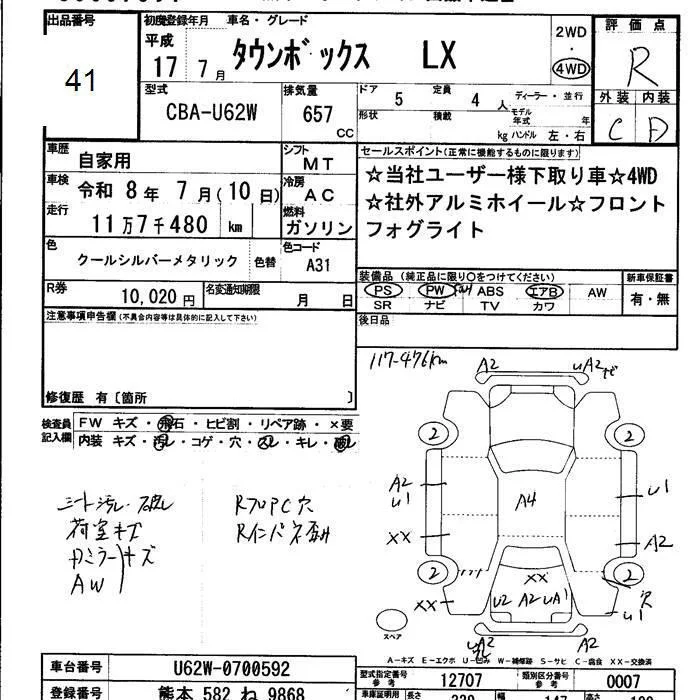 出品番号
41
初度登録年月 車名・グレード
平成
17 7月 タウンボックス LX
2WD
・
4WD
評価点
R
型式
CBA-U62W
排気量
657
CC
ドア 5 定員 4 人
ディーラー・並行
形状 積載 kg
モデル年式 年
ハンドル 左・右
外装 内装
C D
車歴
自家用
シフト
MT
車検
令和 8年 7月(10日)
冷房
AC
走行
11万7千480 km
燃料
ガソリン
色
クールシルバーメタリック 色替
色コード
A31
R券
10,020円
名変通知期限
月 日
セールスポイント(正常に機能するものに限ります)
☆当社ユーザー様下取り車☆4WD
☆社外アルミホイール☆フロント
フォグライト
装備品(純正品に限り〇をつけてください)
PS PW ABS エアB AW
SR ナビ TV カワ
新車保証書
有・無
後日品
注意事項申告欄(不具合内容等は具体的に記入して下さい)
修復歴 有〔箇所 〕
検査員
記入欄
FW キズ・飛石・ヒビ割・リペア跡・×要
内装 キズ・汚レ・コゲ・穴・スレ・キレ・破レ
シート汚レ・破レ
荷室キズ
AW
117-476km
A2
2
2
A2
U1
A4
U1
XX
A2
2
2
XX
XX
U2 A2 UA1
U1
穴
A2
スペア
A-キズ E-エクボ U-凹み W-補修跡 S-サビ C-腐食 XX-交換済
車台番号 U62W-0700592
登録番号 熊本 582 ね 9868
型式指定番号
参考
12707
類別区分番号
参考
0007